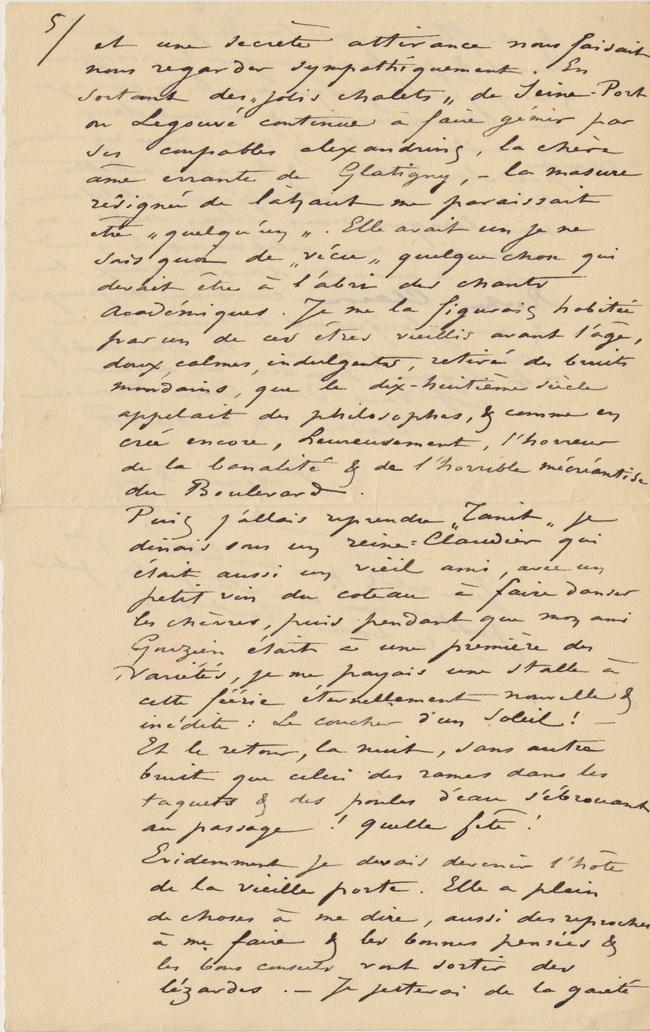 5/
et une secrète attirance nous faisait
nous regarder sympathiquement. En
sortant des „jolis chalets„ de Seine-Port
ou Legouvé continue à faire gémir par
ses coupables alexandrins, la chère
âme errante de Glatigny, – la masure
résignée de là haut me paraissait
être „quelqu'un„. Elle avait un je ne
sais quoi de „vécu„ quelque chose qui
devait être à l'abri des chants
Académiques. Je me la figurais habitée
par un de ces êtres vieillis avant l'âge,
doux, calmes, indulgents, retirés des bruits
mondains, que le dix-huitième siècle
appelait des philosophes, & comme en
crée encore, heureusement, l'horreur
de la banalité & de l'horrible
du Boulevard.
Puis j'allais reprendre „Tanit„ je
dinais sous un reine-Claudier qui
était aussi un vieil ami, avec un
petit vin du coteau à faire danser
les chèvres, puis pendant que mon ami
Gouzien était à une première des
Variétés, je me payais une stalle à
cette féérie éternellement nouvelle &
inédite : Le coucher d'un Soleil ! –
Et le retour, la nuit, sans autre
bruit que celui des rames dans les
taquets & des poules d'eau s'ébrouant
au passage ! quelle fête !
Evidemment je devais devenir l'hôte
de la vieille porte. Elle a plein
de choses à me dire, aussi des reproches
à me faire & les bonnes pensées &
les bons conseils vont sortir des
lézardes. – Je jetterai de la gaieté